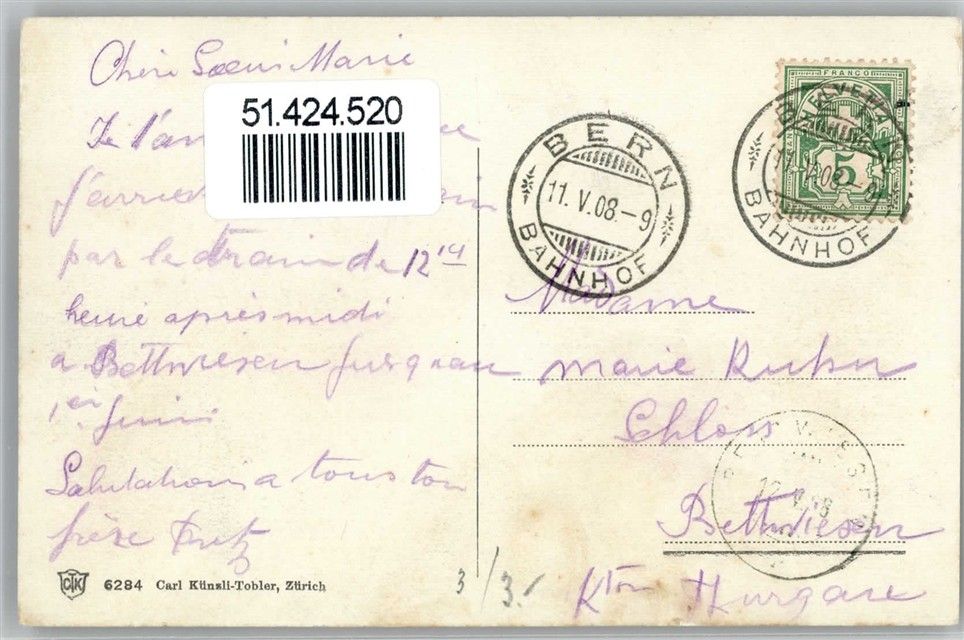 Chère Soeur Marie
Je t'an
j'arrive
par le train de 12 1/4
heure après midi
a Bettwiesen jusqu'au
1er Juin
Salutation a tous ton
frère Fritz
51.424.520
CTK 6284 Carl Künzli-Tobler, Zürich
3/3.
BERN
11.V.08-9
BAHNHOF
FRANCO
HELVETIA
5
11.V.08-9
BAHNHOF
Madame
Marie Kuhn
Schloss
Bettwiesen
Kton Thurgau
12.V.08